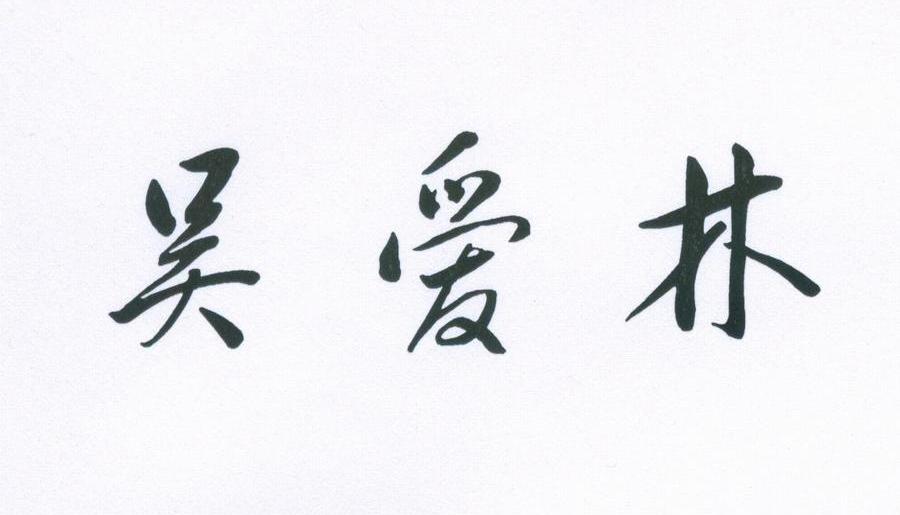 吴爱林